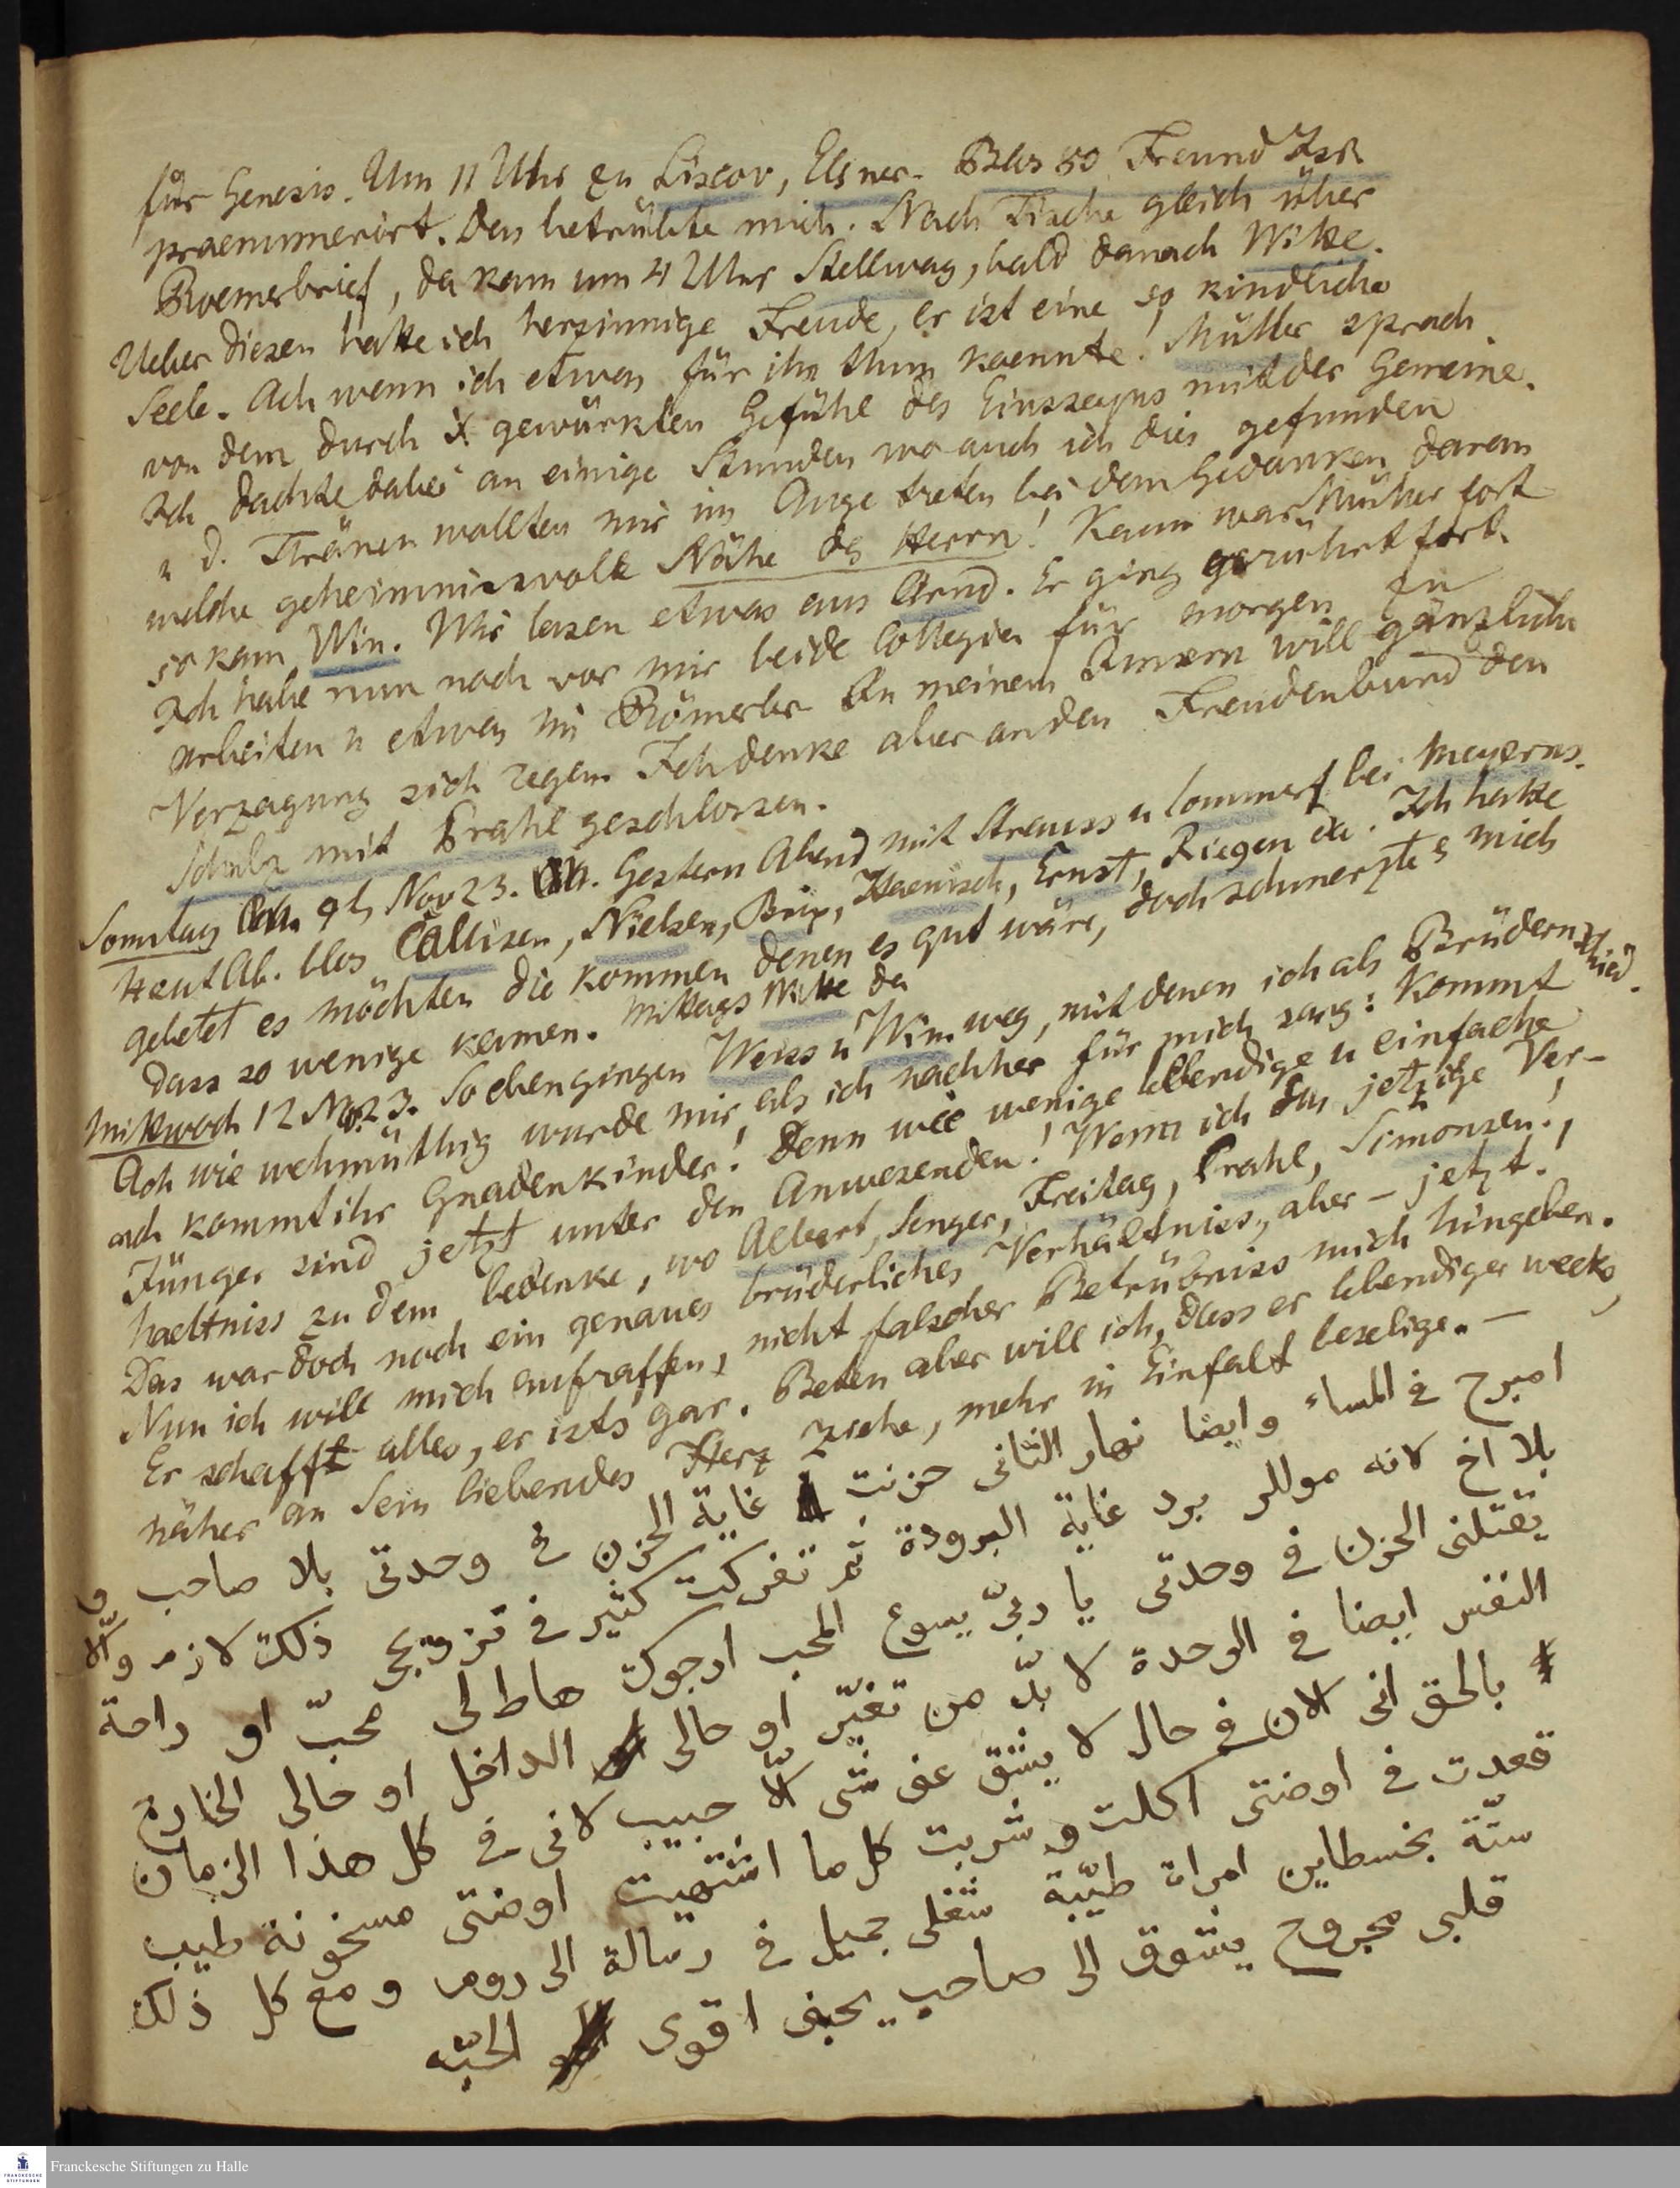 für Genesis. Um 11 Uhr zu Liscov, Elsner. Blos 50 Freund Isr.
praenumerirt. Das betrübte mich. Nach Tische gleich über
Roemerbrief, da kam um 4 Uhr Stellwag, bald danach Witte.
Ueber diesen hatte ich herzinnige Freude, er ist eine so kindliche
Seele. Ach wenn ich etwas für ihn thun koennte! Müller sprach
von dem durch X gewürkten Gefühl des Einsseyns mit der Gemeine.
Ich dachte dabei an einige Stunden wo auch ich dies gefunden
u d. Thränen wollten mir ins Auge treten bei dem Gedanken daran
welche geheimnissvolle Nähe des Herrn! Kaum war Müller fort
so kam Win. Wir lasen etwas aus Arnd. Er ging gerührt fort.
Ich habe nun noch vor mir beide Collegien für morgen zu
arbeiten u etwas im Römerbr. In meinem Innern will gänzliche
Verzagung sich regen. Ich denke aber an den Freudenbund den
Schulz mit Prahl geschlossen.
Sonntag 9 h Nov 23. Gestern Abend mit Strauss u Commerf bei Meyerns.
Heut Ab. blos Callisen, Nielsen, Brix, Haenisch, Ernst, Ziegen da. Ich hatte
gebetet es möchten die kommen denen es gut wäre, doch schmerzte es mich
dass so wenige kamen. Mittags Witte da
Mittwoch 12 Nov 23. So eben gingen Weiss u Wim weg, mit denen ich als Brüdern
Ach wie wehmüthig wurde mir, als ich nachher für mich sang: Kommt
ach kommt ihr Gnadenkinder! Denn wie wenige lebendige u einfache
Jünger sind jetzt unter den Anwesenden! Wenn ich das jetzige Ver-
haeltniss zu dem bedenke, wo Albert, Senger, Freitag, Prahl, Simonsen!,
Das war doch noch ein genaues brüderliches Verhältniss, aber – jetzt!
Nun ich will mich aufraffen, nicht falscher Betrübniss mich hingeben.
Er schafft alles, er ists gar. Beten aber will ich, dass er lebendiger wecke,
näher an Sein liebendes Herz ziehe, mehr in Einfalt beselige. –
امبرح في المساء وايضا نهار الثانى حزنت غاية الحزن في وحدتى بلا صاحب و
بلا اخ لانه موللر برد غاية البرودة ثم تفكرت كثير في تزويجى ذلك لازم والّا
يقتلنى الحزن في وحدتى يا ربّى يسوع المحب ارجوك هاط لى محبّ او راحة
النفس ايضا في الوحدة لا بدّ من تغيّر او حالى الداخل او حالى الخارج
بالحق انى الان في حال لا يشق عنى شى الّا حبيب لانى في كل هذا الزمان
قعدت في اوضتى اكلت وشربت كل ما اشتهيت اوضتى مسخونة طيب
ستّة بخسطاين امراة طيّبة شغلى جميل في رسالة الى روم ومع كل ذلك
قلبى مجروح يشوق الى صاحب يحبنى اقوى الحبّه
Franckesche Stiftungen zu Halle